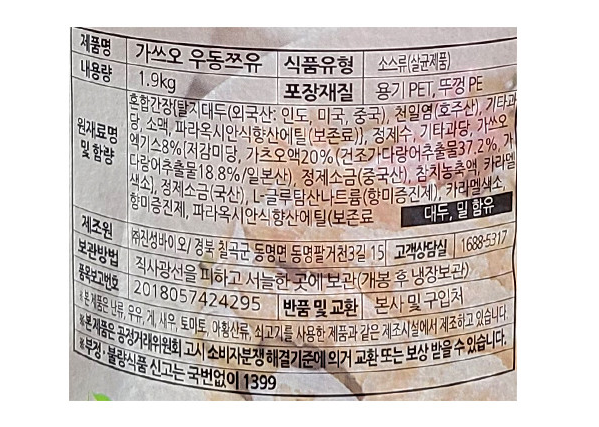 제품명 가쓰오 우동쯔유 식품유형 소스류(살균제품)
내용량 1.9kg 포장재질 용기 PET, 뚜껑 PE
원재료명 및 함량
혼합간장{탈지대두(외국산: 인도, 미국, 중국), 천일염(호주산), 기타과
당, 소맥, 파라옥시안식향산에틸(보존료)}, 정제수, 기타과당, 가쓰오
엑기스8%(저감미당, 가츠오액20%(건조가다랑어추출물37.2%, 가
다랑어추출물18.8%/일본산), 정제소금(중국산), 참치농축액, 카라멜
색소), 정제소금(국산), L-글루탐산나트륨(향미증진제), 카라멜색소,
향미증진제, 파라옥시안식향산에틸(보존료
대두, 밀 함유
제조원 ㈜진성바이오/ 경북 칠곡군 동명면 동명팔거천3길 15 고객상담실 1688-5317
보관방법 직사광선을 피하고 서늘한 곳에 보관(개봉 후 냉장보관)
품목보고번호 2018057424295 반품 및 교환 본사 및 구입처
※본 제품은 난류, 우유, 게, 새우, 토마토, 아황산류, 쇠고기를 사용한 제품과 같은 제조시설에서 제조하고 있습니다.
※본제품은 공정거래위원회 고시 소비자분쟁해결기준에 의거 교환 또는 보상 받을 수 있습니다.
※부정·불량식품 신고는 국번없이 1399